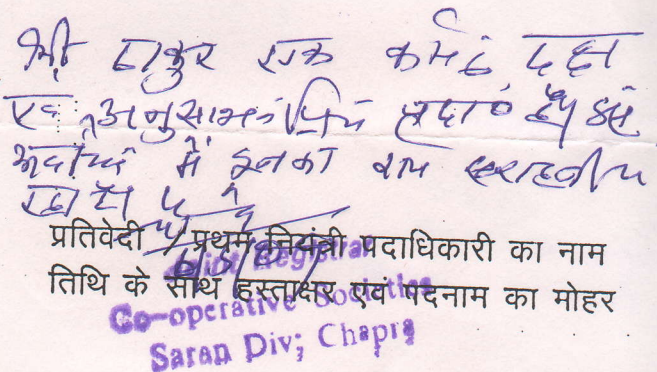 श्री ठाकुर एक कर्मठ दक्ष
एवं अनुशासन प्रिय
में इनका कार्य सराहनीय
रहा है
प्रतिवेदी / प्रथम नियंत्री पदाधिकारी का नाम
तिथि के साथ हस्ताक्षर एवं पदनाम का मोहर
Joint Registrar
Co-operative Societies
Saran Div; Chapra